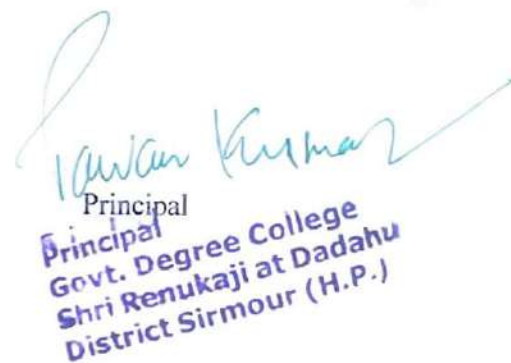 Pawan Kumar
Principal
Principal
Govt. Degree College
Shri Renukaji at Dadahu
District Sirmour (H.P.)